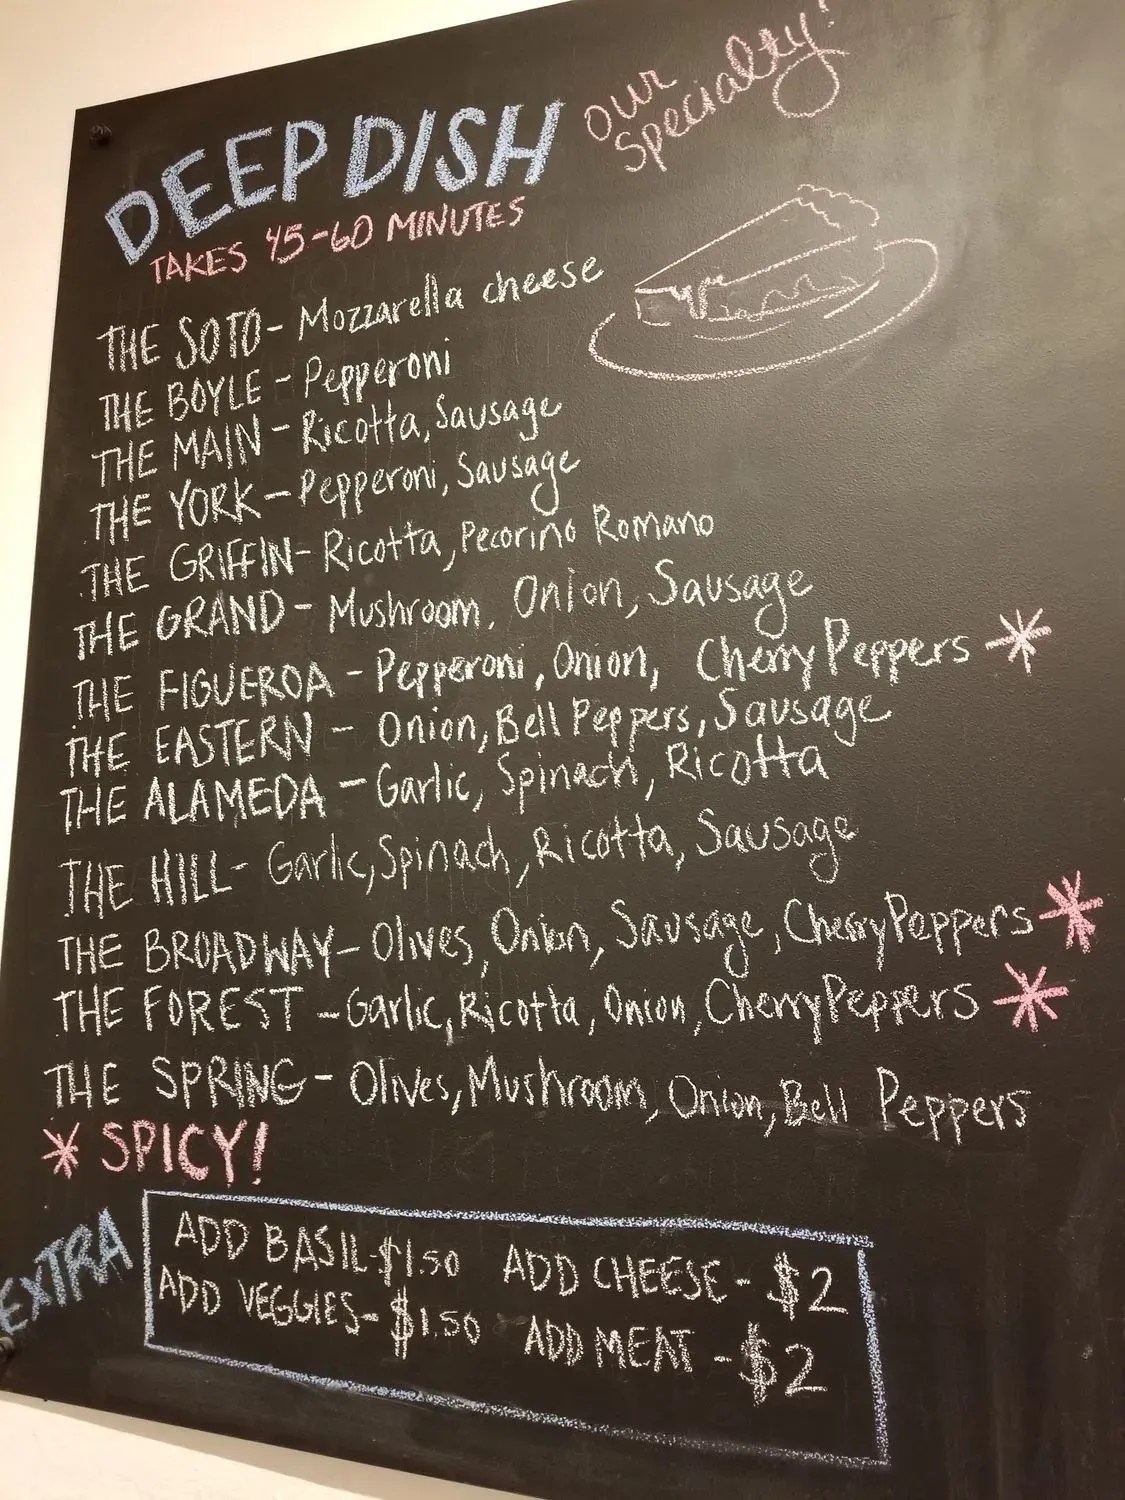 DEEP DISH our Specialty!
TAKES 45-60 MINUTES
THE SOTO- Mozzarella cheese
THE BOYLE - Pepperoni
THE MAIN - Ricotta, Sausage
THE YORK - Pepperoni, Sausage
THE GRIFFIN- Ricotta, Pecorino Romano
THE GRAND - Mushroom, Onion, Sausage
THE FIGUEROA - Pepperoni, Onion, Cherry Peppers *
THE EASTERN - Onion, Bell Peppers, Sausage
THE ALAMEDA - Garlic, Spinach, Ricotta
THE HILL- Garlic, Spinach, Ricotta, Sausage
THE BROADWAY- Olives, Onion, Sausage, Cherry Peppers *
THE FOREST - Garlic, Ricotta, Onion, Cherry Peppers *
THE SPRING - Olives, Mushroom, Onion, Bell Peppers
* SPICY!
EXTRA
ADD BASIL-$1.50 ADD CHEESE - $2
ADD VEGGIES-$1.50 ADD MEAT - $2